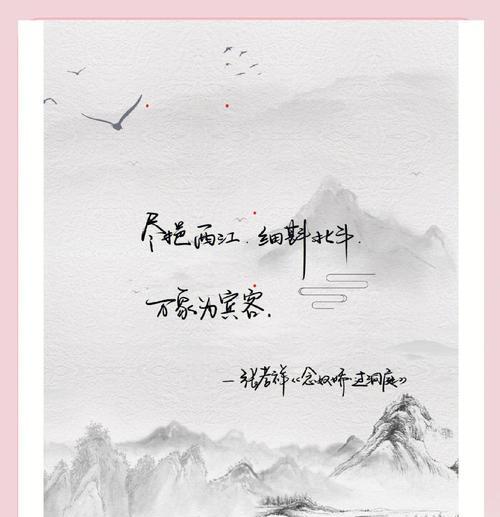 尽挹西江,细斟北斗,
万象为宾客.
—张孝祥《念奴娇·过洞庭》